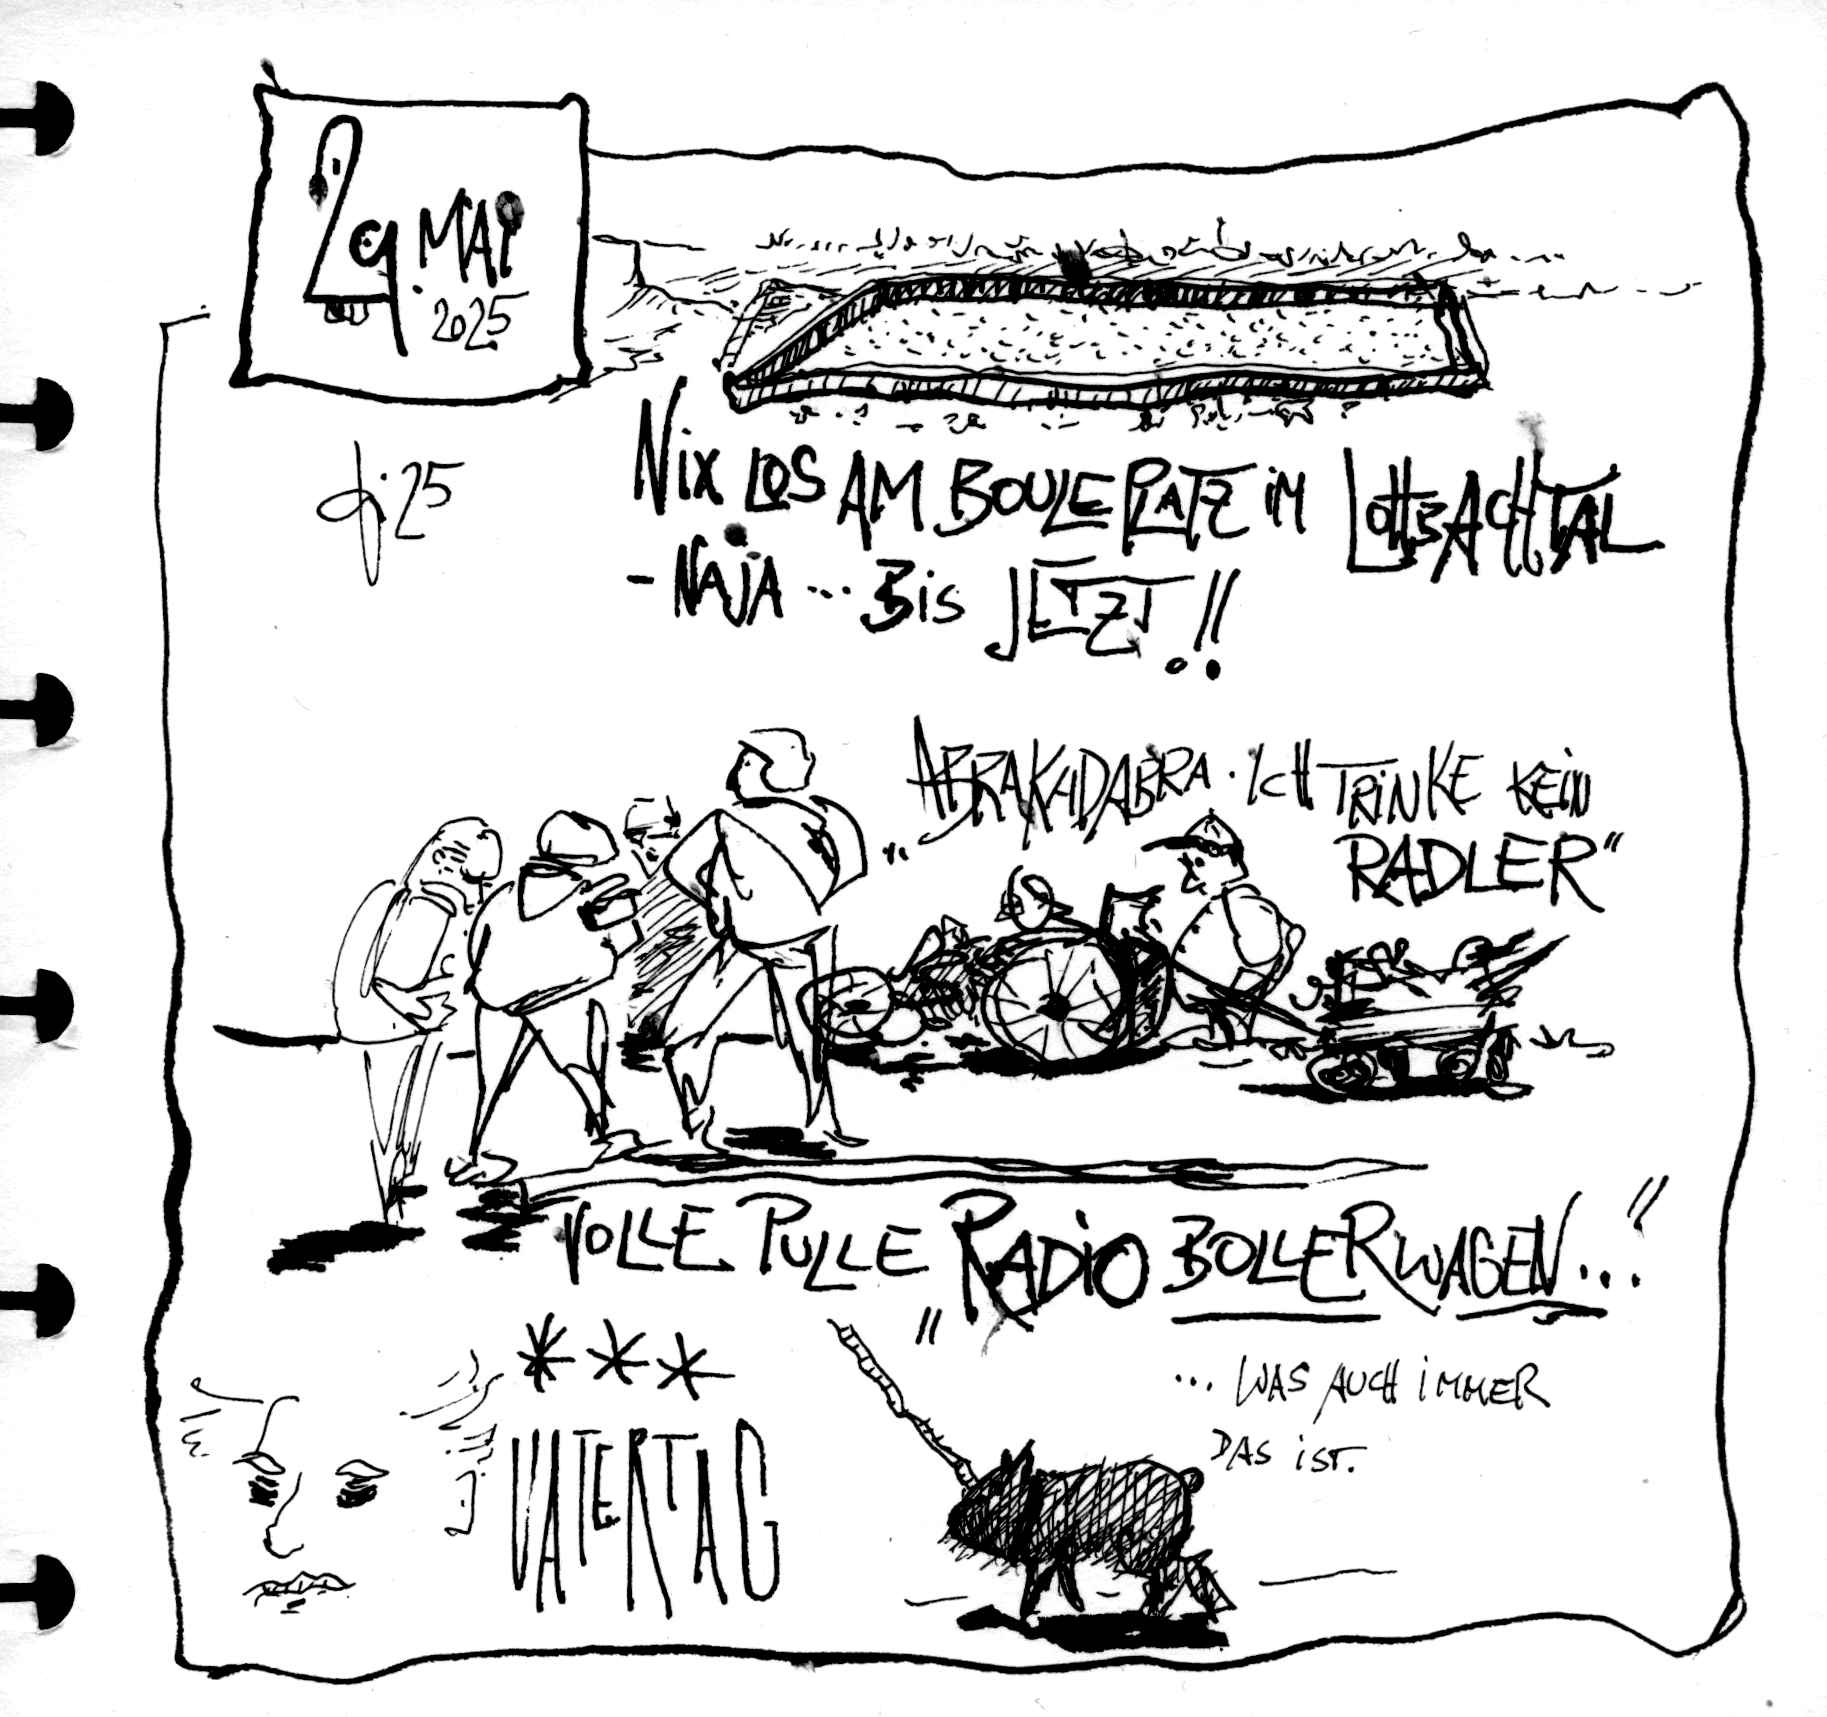 29. MAI
2025
25
NIX LOS AM BOULEPLATZ IM LOHBACHTAL
- NAJA ... BIS JETZT!!
„ABRAKADABRA. ICH TRINKE KEIN
RADLER“
VOLLE PULLE „RADIO BOLLERWAGEN...“
... WAS AUCH IMMER
DAS IST.
***
VATERTAG